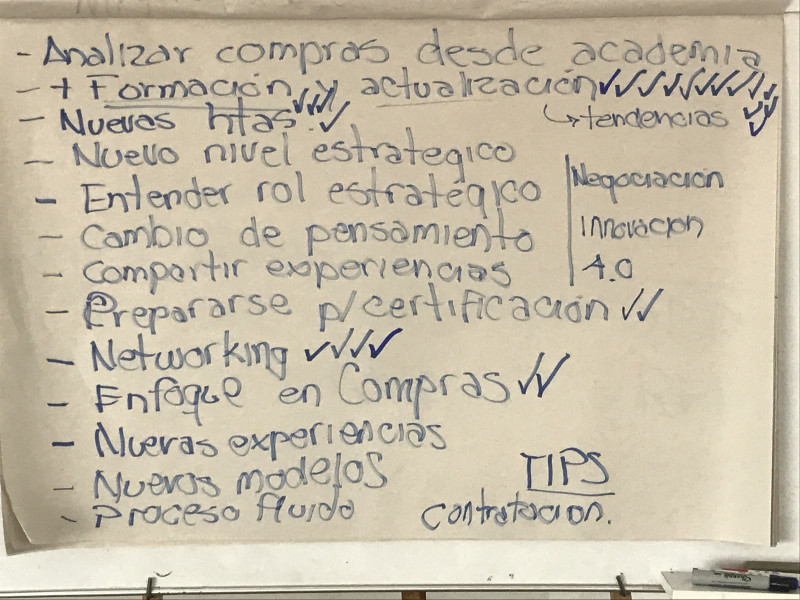 - Analizar compras desde academia
- + Formación y actualización ✓✓✓✓✓✓✓✓
- Nuevas htas. ✓✓✓✓
↳ tendencias ✓✓✓
- Nuevo nivel estrategico
- Entender rol estratégico
- Cambio de pensamiento
- Compartir experiencias
Negociación
Innovacion
4.0
- Prepararse p/ certificación ✓✓
- Networking ✓✓✓✓
- Enfoque en Compras ✓✓
- Nuevas experiencias
- Nuevos modelos
- Proceso fluido
TIPS
Contratacion.